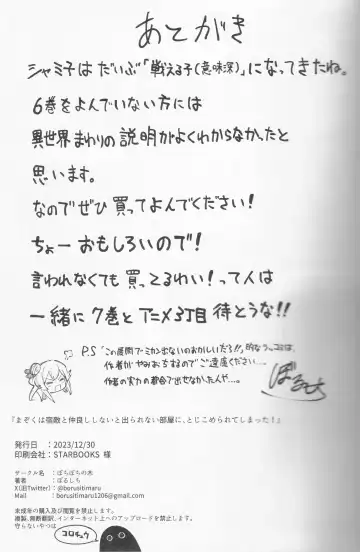 あとがき
シャミ子はだいぶ「戦える子(意味深)」になってきたね。
6巻をよんでいない方には
異世界まわりの説明がよくわからなかったと
思います。
なのでぜひ買ってよんでください!
ちょーおもしろいので!
言われなくても買ってるわい!って人は
一緒に7巻とアニメ3丁目待とうな!!
P.S「この展開でミカン出ないのおかしいだろ!!」的なツッコミは、
作者がやみおちするのでご遠慮ください…
作者の実力の都合で出せなかったんや…。
ぼるしち
『まぞくは宿敵と仲良ししないと出られない部屋に、とじこめられてしまった!』
発行日 : 2023/12/30
印刷会社: STARBOOKS 様
サークル名 : ぼちぼちの木
著者 : ぼるしち
X(旧Twitter) : @borusitimaru
Mail : borusitimaru1206@gmail.com
未成年の購入及び閲覧を禁止します。
複製、無断翻訳、インターネット上へのアップロードを禁止します。
守らないやつは
コロチュウ